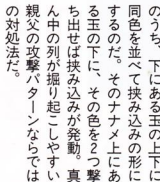 のうち、下にある玉の上下に
同色を並べて挟み込みの形に
するのだ。そのナナメ上にあ
る玉の下に、その色を2つ撃
ち出せば挟み込みが発動。真
ん中の列が掘り起こしやすい
親父の攻撃パターンならでは
の対処法だ。